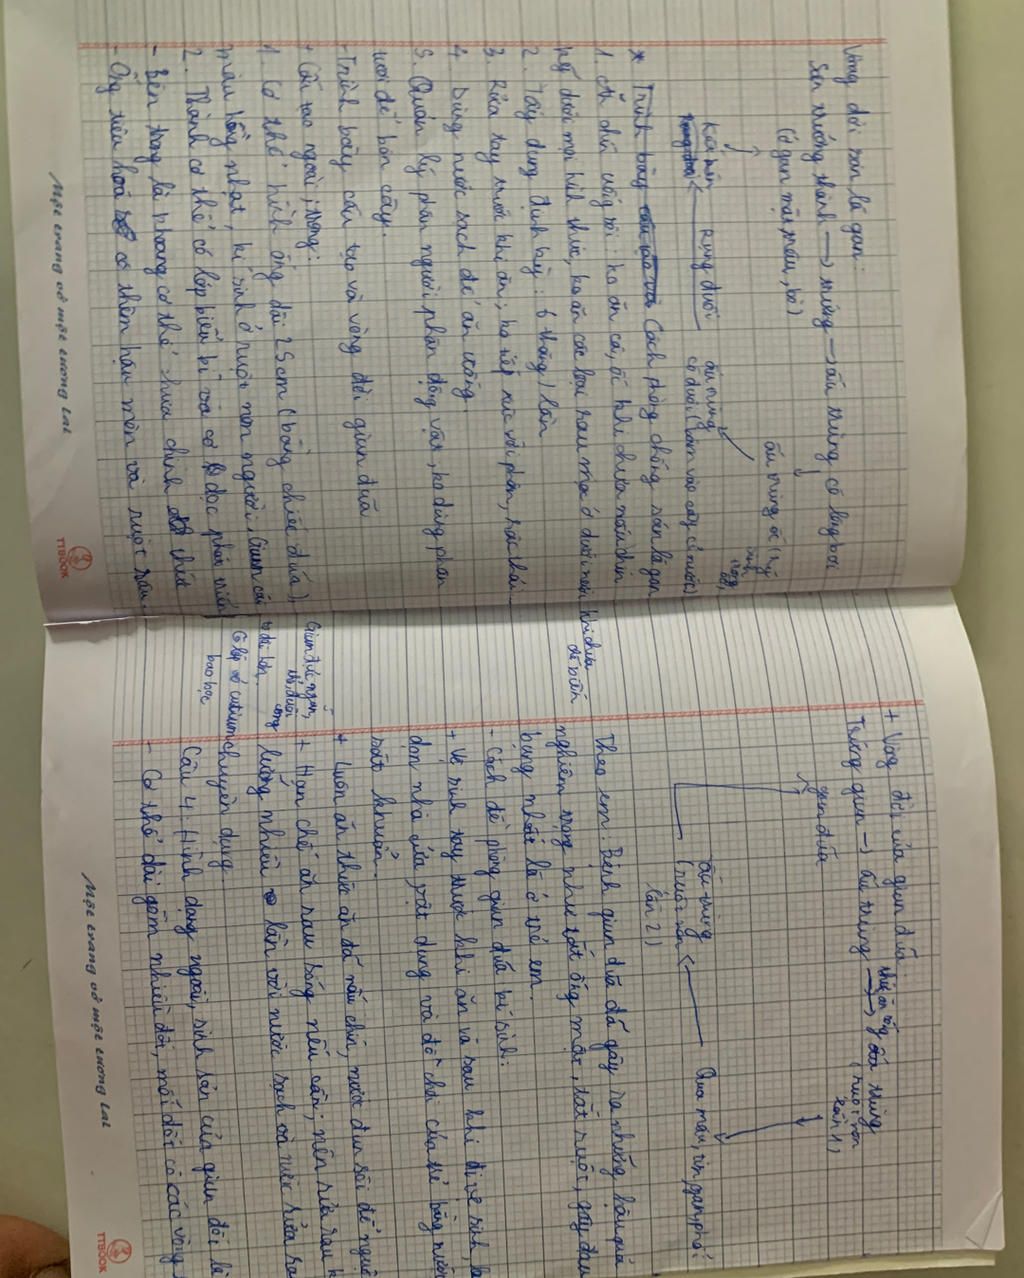 Vòng đời sán lá gan:
Sán trưởng thành → trứng → ấu trùng có lông bơi
(ở gan mật, trâu, bò)
ấu trùng ốc (ký sinh trong ốc)
Kết kén ← rụng đuôi ấu trùng có đuôi (bám vào cây cỏ nước)
* Trình bày Cách phòng chống sán lá gan
1. Ăn chín uống sôi: ko ăn cá, ốc khi chưa nấu chín
kỹ dưới mọi hình thức, ko ăn các loại rau mọc ở dưới nước khi chưa
2. Tẩy dung định kỳ: 6 tháng/lần
3. Rửa tay trước khi ăn; ko tiếp xúc với phân, rác thải...
4. Dùng nước sạch để ăn uống
5. Quản lý phân người phân động vật, ko dùng phân
tươi để bón cây.
- Trình bày cấu tạo và vòng đời giun đũa
+ Cấu tạo ngoài, trong:
1. Cơ thể hình ống dài 25cm (bằng chiếc đũa)
màu hồng nhạt, kí sinh ở ruột non người. Giun cái
2. Thành cơ thể có lớp biểu bì và cơ dọc phát triển
- Bên trong là khoang cơ thể chưa chính thức
- Ống tiêu hoá có thêm hậu môn và ruột sau.
Một trang vở một tương lai
TTBOOK
+ Vòng đời của giun đũa
Trứng giun → ấu trùng → thức ăn sống
(ruột non lần 1)
giun đũa
ấu trùng ← Qua máu, tim, gan, phổi
(ruột non
lần 2)
Theo em: Bệnh giun đũa đã gây ra những hậu quả
nghiêm trọng như tắt ống mật, tắt ruột, gây đau
bụng nhất là ở trẻ em.
- Cách đề phòng giun đũa kí sinh:
+ Vệ sinh tay trước khi ăn và sau khi đi vệ sinh
dọn nhà cửa, vật dụng và đồ chơi của trẻ bằng nước
sát khuẩn.
+ Luôn ăn thức ăn đã nấu chín, nước đun sôi để nguội
Giun đực ngắn, nhỏ, đuôi cong
+ Hạn chế ăn rau sống nếu cần; nên rửa rau
lượng nhiều lần với nước sạch và nước rửa
Có lớp vỏ cuticun bao bọc
chuyên dụng
Câu 4: Hình dạng ngoài, sinh sản của giun đốt là
- Cơ thể dài gồm nhiều đốt, mỗi đốt có các vòng
Một trang vở một tương lai
TTBOOK